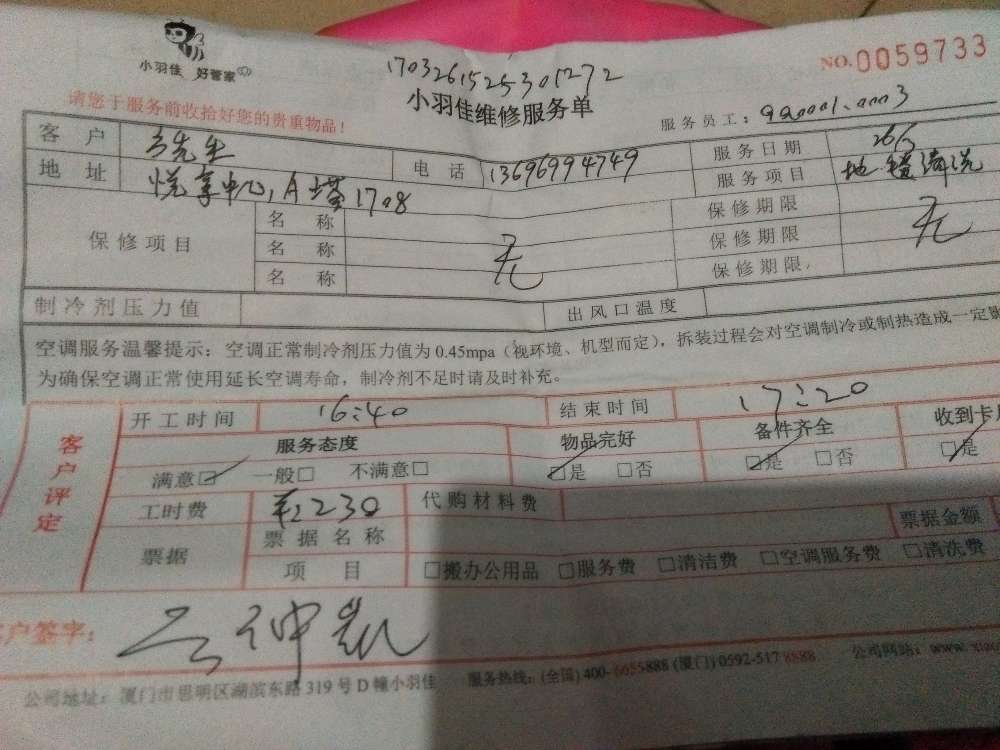 小羽佳 好管家
NO.0059733
170326152530
小羽佳维修服务单
请您于服务前收拾好您的贵重物品！
服务员工：
客户 先生 电话 13696994749 服务日期
地址 中心,A塔1708 服务项目 地毯清洗
保修项目 名称 无 保修期限 无
名称 保修期限
名称 保修期限
制冷剂压力值 出风口温度
空调服务温馨提示：空调正常制冷剂压力值为0.45mpa（视环境、机型而定），拆装过程会对空调制冷或制热造成一定影
为确保空调正常使用延长空调寿命，制冷剂不足时请及时补充。
客户评定 开工时间 16:40 结束时间 17:20
服务态度 物品完好 备件齐全 收到卡
满意☑ 一般□ 不满意□ ☑是 □否 ☑是 □否 ☑是
工时费 ¥:230 代购材料费
票据 票据名称 票据金额
项目 □搬办公用品 □服务费 □清洁费 □空调服务费 □清洗费
户签字：
公司地址：厦门市思明区湖滨东路319号D幢小羽佳 服务热线：(全国)400-6655888 (厦门)0592-5178888 公司网站：www.xiao